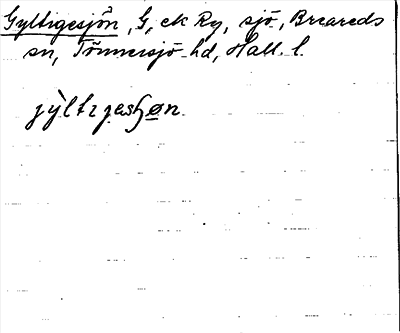 Gyltigesjön, G, ek Ry, sjö, Breareds
sn, Tönnersjö hd, Hall. l.
jỳltıgesɧøn